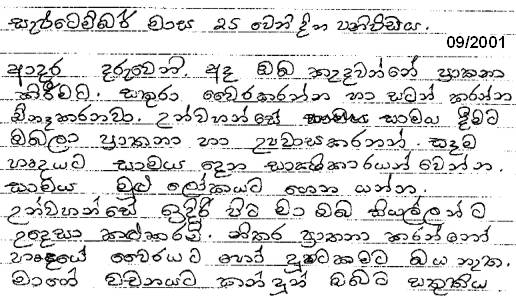 සැප්තෙම්බර් මාස 25 වෙනි දින පනිවිඩය.
09/2001
ආදර දරුවෙනි, අද ඔබ කැදවන්නේ ප්‍රාකනා
කිරීමට. සතුරා වෛරකරන්න හා සටන් කරන්න
විනෑකරනවා. උන්වහන්සේ සාමය දීමට
ඔබලා ප්‍රාකනා හා උපවාසකරනන්. සෑම
හෘදයට සාමය දෙන සාක්‍ෂිකාරයන් වෙන්න.
සාමය මුළු ලෝකයට ගෙන යන්න.
උන්වහන්සේ ඉදිරි පිට මා ඔබ සියල්ලන්ට
උදෙසා කළකරමි. නිතර ප්‍රාකනා කරන්නෝ
හෘදයේ වෛරයට හෝ දුෂ්ටකමට බය නැත.
මාගේ වචනයට කන් දුන් ඔබට සතුතිය